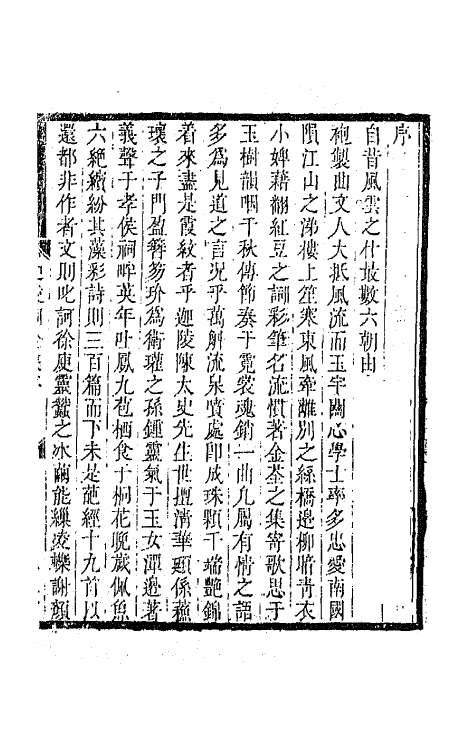 序
自昔風雲之什最數六朝由
袍製曲文人大抵風流而玉宇關心學士率多忠愛南國
隕江山之涕樓上笙寒東風牽離別之絲橋邊柳暗青衣
小婢藉翻紅豆之詞彩筆名流慣著金荃之集寄歌思于
玉樹韻咽千秋傳節奏于霓裳魂銷一曲凡屬有情之語
多爲見道之言况乎萬斛流泉噴處即成珠顆千端艷錦
着來盡是霞紋者乎迦陵陳太史先生世擅清華頭係蘓
瓌之子門盈簪笏玠爲衛瓘之孫鍾靈氣于玉女潭邊著
義聲于孝侯祠畔英年吐鳳九苞栖食于桐花晚歲佩魚
六絶繽紛其藻彩詩則三百篇而下未是葩經十九首以
還都非作者文則叱訶徐庾靈蠶之氷繭能繅凌轢謝顏